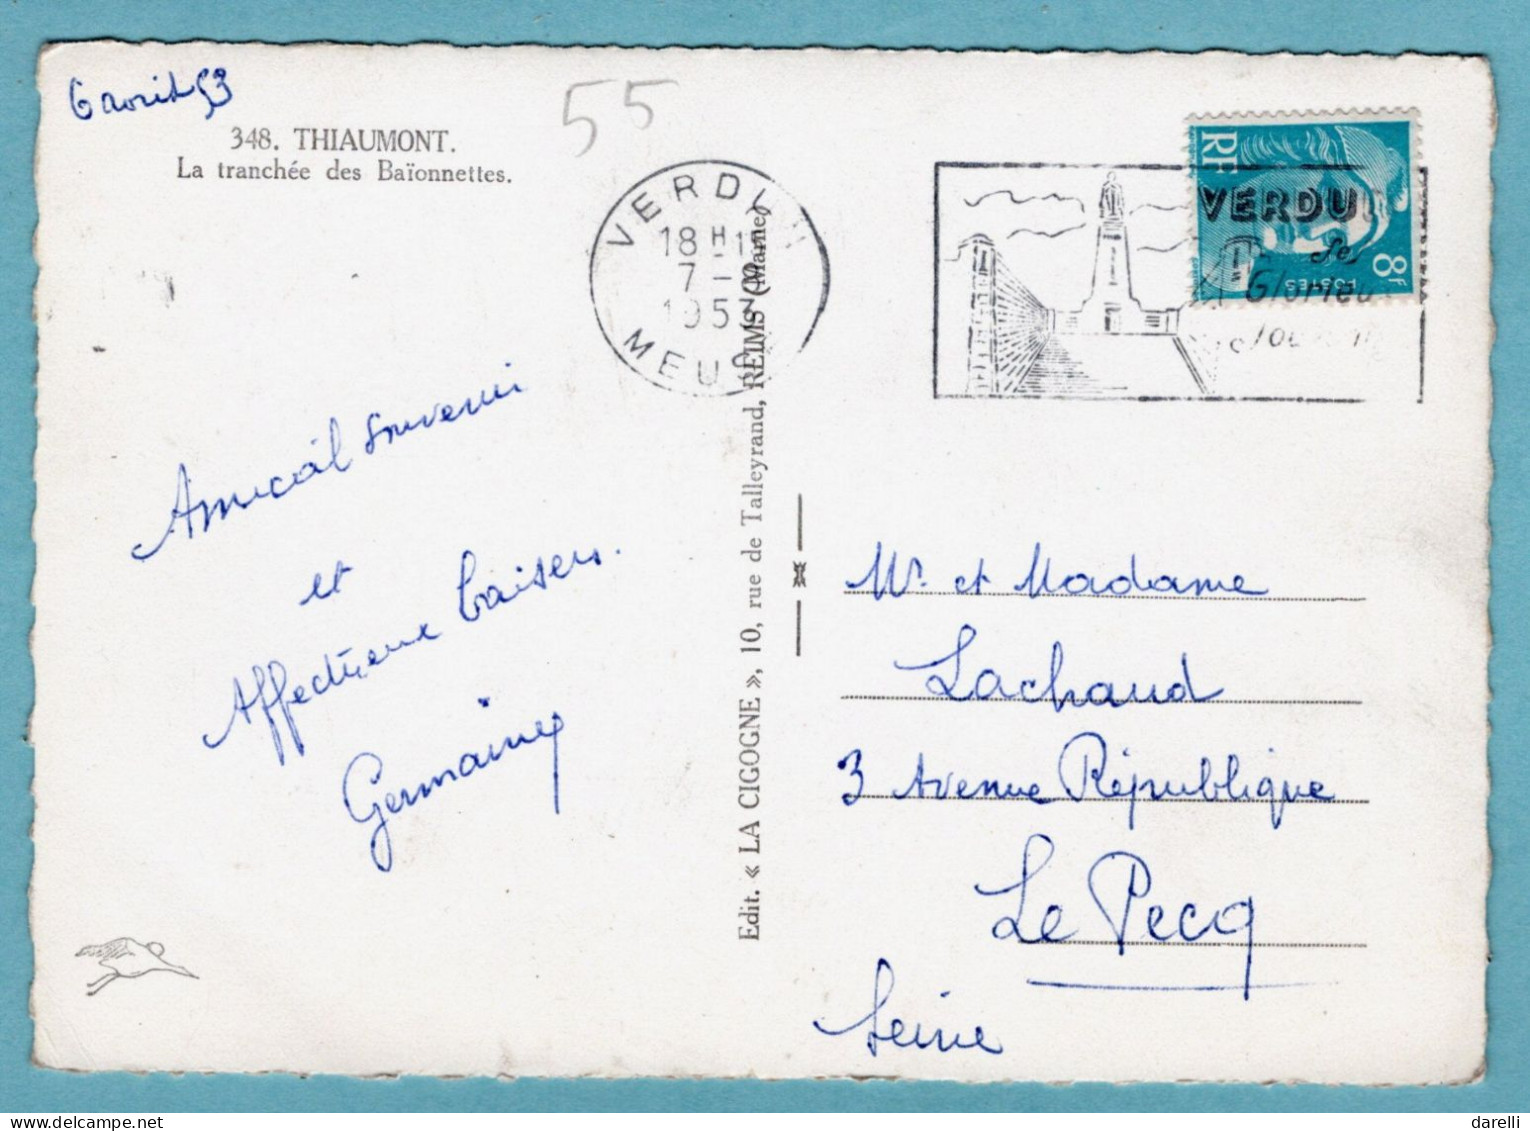 6 avril 53
55
348. THIAUMONT.
La tranchée des Baïonnettes.
VERDUN
18 H
7 -
1953
MEUSE
RF
VERDU
Ses
Glorieu
8F
POSTES
Amical souvenir
et
Affectueux baisers.
Germaine
Edit. « LA CIGOGNE », 10, rue de Talleyrand, REIMS (Marne)
Mr. et Madame
Lachaud
3 Avenue République
Le Pecq
Seine
darelli